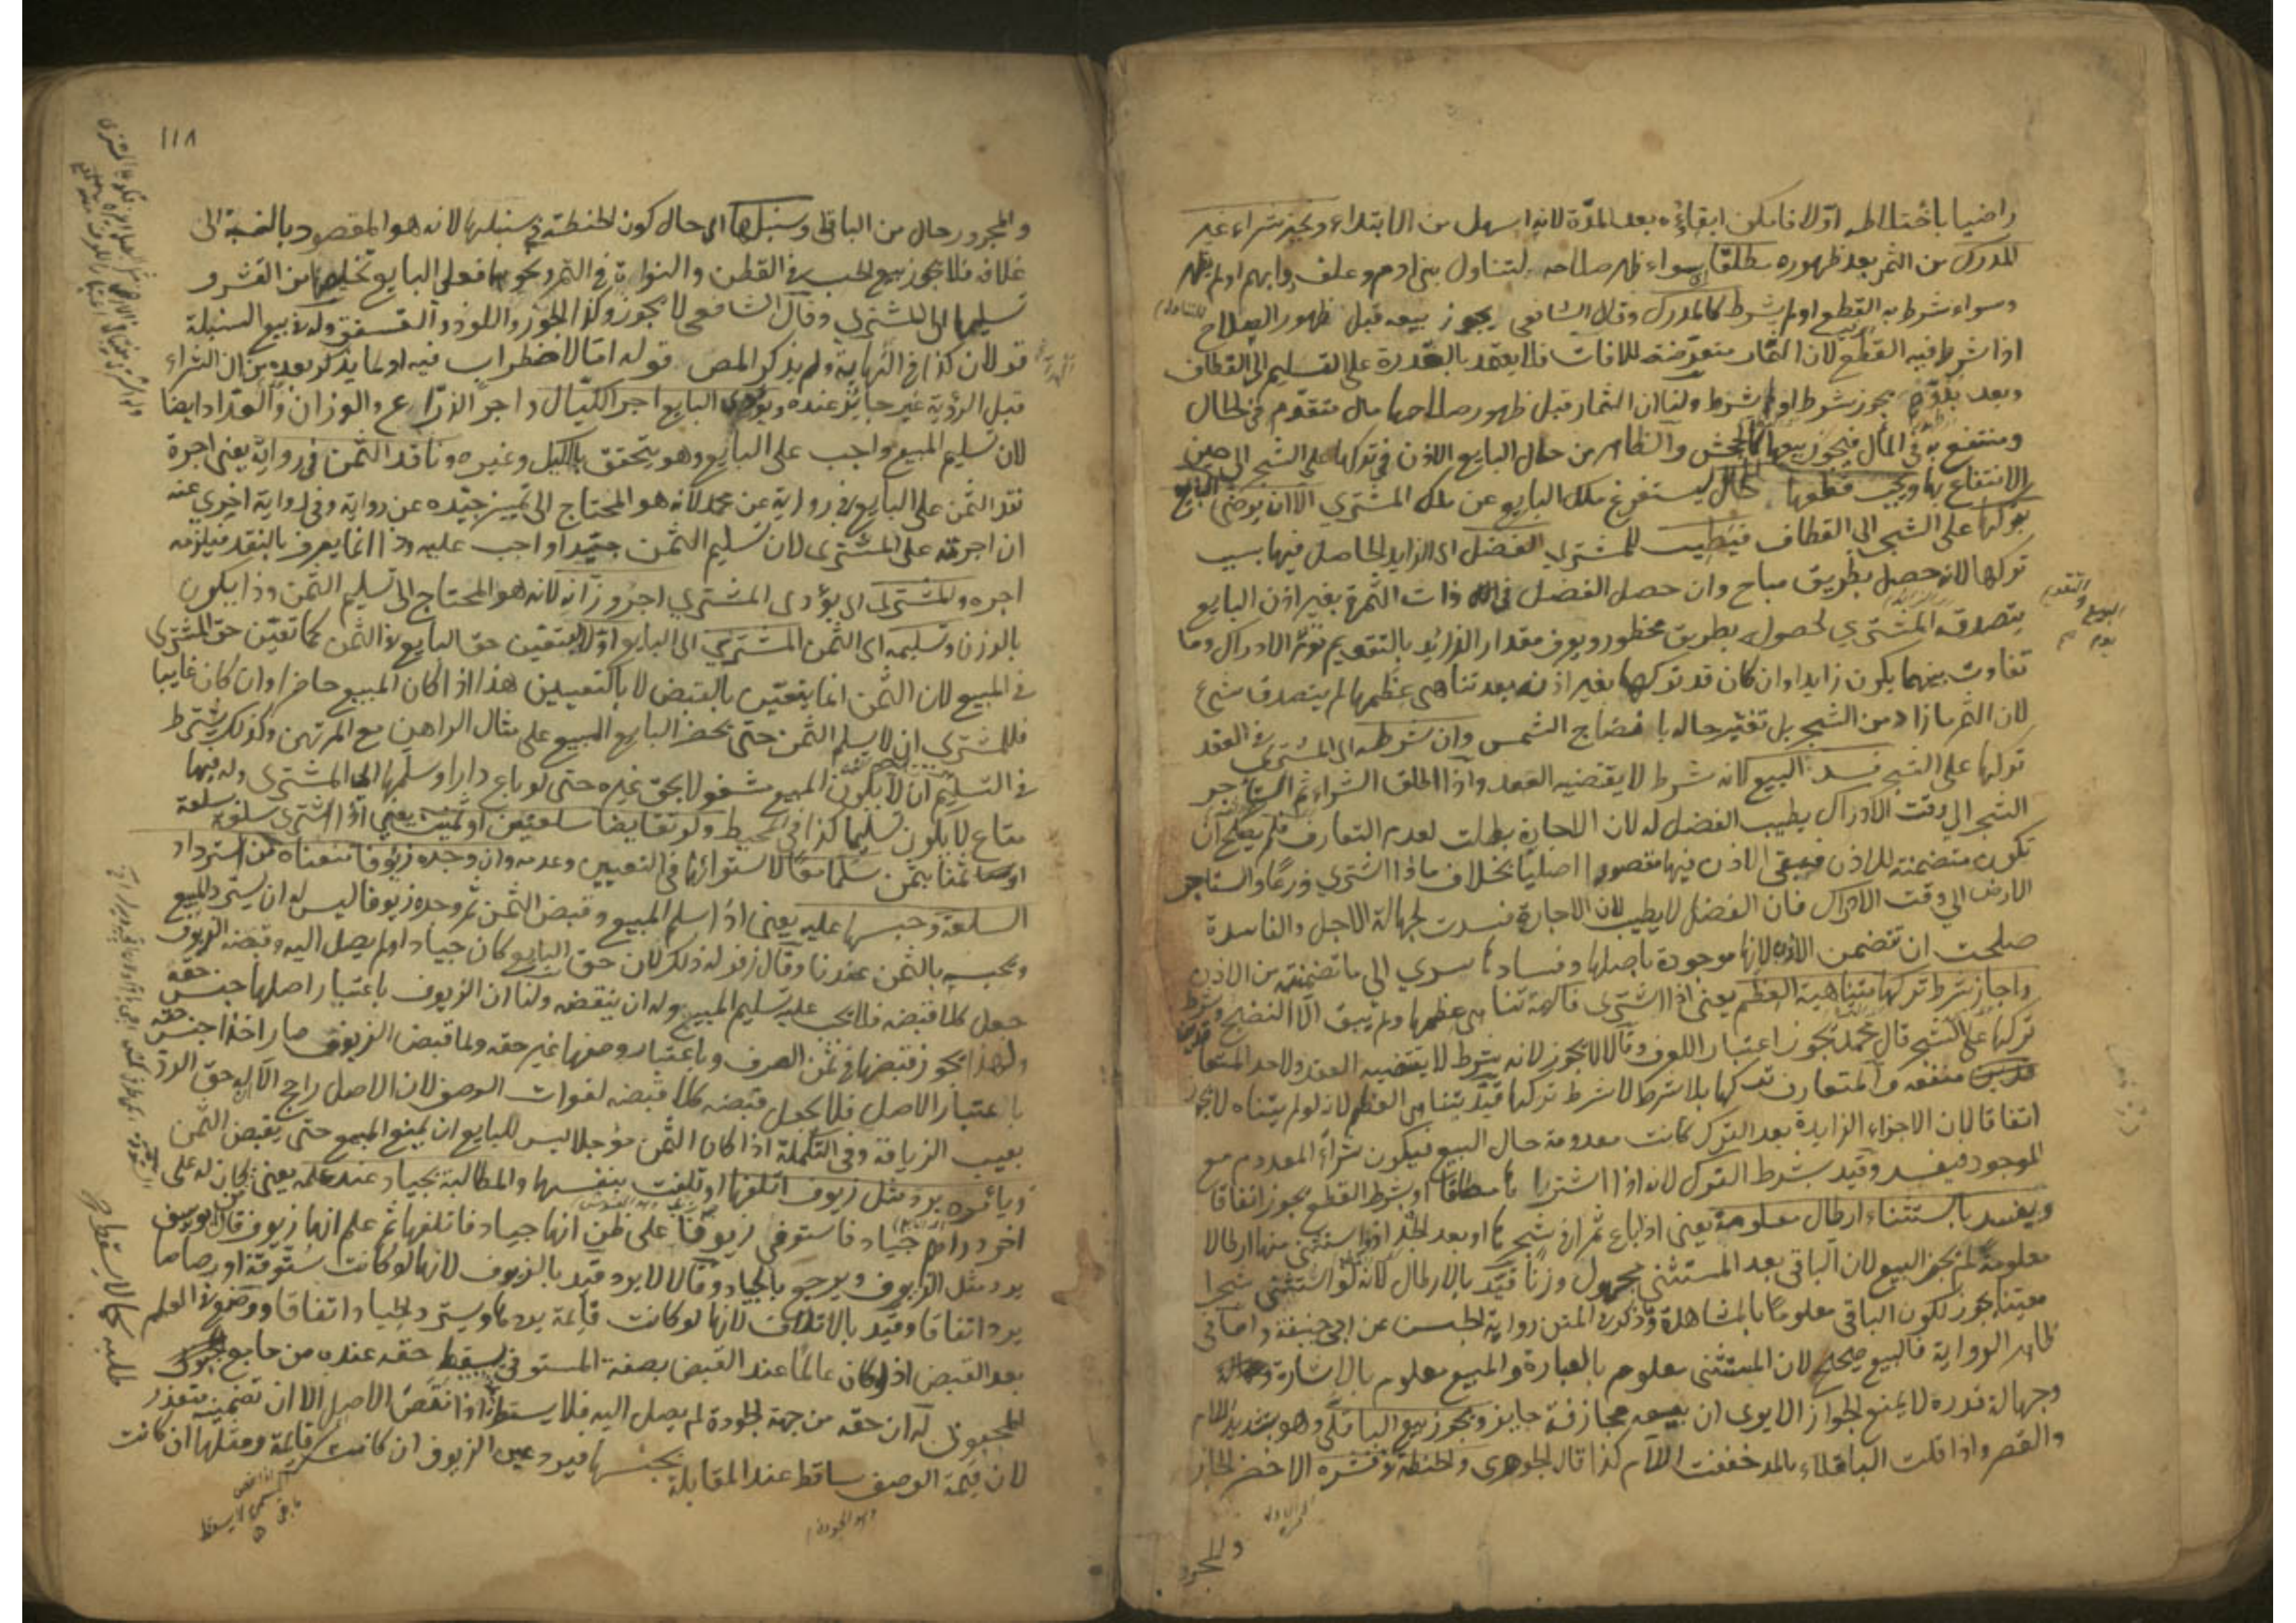 راضيا باختلاطه اولا فامكن ابقاؤه بعد المدة لانه اسهل من الابتداء ونجيز شراء غير
المدرك من الثمر بعد ظهوره مطلقا سواء ظهر صلاحه لتناول بني ادم وعلف وابهم او لم يظهر
وسواء شرط به القطع او لم يشرط كالمدرك وقال الشافعي يجوز بيعه قبل ظهور الصلاح
اذا شرط فيه القطع لان الثمار متعرضة للافات فلا يعتمد بالقدرة على التسليم الى القطاف
وبعد بدوه يجوز شرط او لم يشرط ولنا ان الثمار قبل ظهور صلاحها مال متقوم في الحال
ومنتفع به في المآل فيجوز بيعها كالجحش والظاهر من حال البايع الاذن في تركها على الشجر الى حين
الانتفاع بها ويجب قطعها للحال ليستفرغ ملك البايع عن ملك المشتري الا ان يرضى البايع
بتركها على الشجر الى القطاف فيطيب للمشتري الفضل اى الزايد الحاصل فيها بسبب
تركها لانه حصل بطريق مباح وان حصل الفضل في ذات الثمرة بغير اذن البايع
يتصدق المشتري لحصوله بطريق محظور ويعرف مقدار الزايد بالتقويم يوم الادراك وما
تفاوت بينهما يكون زايدا وان كان قد تركها بغير اذنه بعد تناهى عظمها لم يتصدق بشئ
لان الثمر ما زاد من الشجر بل تغير حاله بانضاج الشمس وان شرطه اى المشتري في العقد
تركها على الشجر فسد البيع لانه شرط لا يقتضيه العقد واذا اطلق الشراء ثم استأجر
الشجر الى وقت الادراك يطيب الفضل له لان الاجارة بطلت لعدم التعارف فلم يصلح ان
تكون متضمنة للاذن فبقى الاذن فيها مقصودا اصليا بخلاف ما اذا اشترى زرعا واستاجر
الارض الى وقت الادراك فان الفضل لا يطيب لان الاجارة فسدت لجهالة الاجل والفاسدة
صلحت ان تضمن الاذن لانها موجودة باصلها وفسادها سرى الى ما تضمنته من الاذن
واجاز شرط تركها متناهية العظم يعني اذا اشترى فاكهة تناهى عظمها ولم يبق الا النضج وشرط
تركها على الشجر قال محمد يجوز اعتبار العرف وقالا لا يجوز لانه شرط لا يقتضيه العقد ولاحد المتعا
قدين منفعة والمتعارف تركها بلا شرط لا شرط تركها قيد بتناهى العظم لانه لو لم يتناه لا يجوز
اتفاقا لان الاجزاء الزايدة بعد الترك كانت معدومة حال البيع فيكون شراء المعدوم مع
الموجود فيفسد وقيد بشرط الترك لانه اذا اشتراها مطلقا او بشرط القطع يجوز اتفاقا
ويفسد باستثناء ارطال معلومة يعني اذا باع ثمرا في شجرها او بعد الجذ واستثنى منها ارطالا
معلومة لم يجز البيع لان الباقى بعد المستثنى مجهول وزنا قيد بالارطال لانه لو استثنى شجرا
معينا يجوز لكون الباقى معلوما بالمشاهدة وذكر في المتن رواية الحسن عن ابي حنيفة واما في
ظاهر الرواية فالبيع صحيح لان المستثنى معلوم بالعبارة والمبيع معلوم بالاشارة
وجهالة قدره لا يمنع الجواز الا يرى ان بيعه مجازفة جايز ونجوز بيع الباقلى وهو بتشديد اللام
والقصر واذا قلت الباقلاء بالمد خففت اللام كذا قال الجوهرى والحنطة في قشره الاخضر الجار
والمجرور
١١٨
والمجرور حال من الباقلى وسنبلها اى حال كون الحنطة في سنبلها لانه هو المقصود بالنسبة الى
غلافه فلا يجوز بيع الحب في القطن والنواة في التمر ونحوها فعلى البايع تخليصها من القشر و
تسليمها الى المشتري وقال الشافعي لا يجوز وكذا الجوز واللوز والفستق وله في بيع السنبلة
قولان كذا في النهاية ولم يذكر المص قوله اما لاضطراب فيه او لما يذكر بعده من ان الشراء
قبل الرؤية غير جائز عنده ويؤدى البايع اجر الكيال واجر الذراع والوزان والعداد ايضا
لان تسليم المبيع واجب على البايع وهو يتحقق بالكيل وغيره وناقد الثمن في رواية يعني اجرة
نقد الثمن على البايع في رواية عن محمد لانه هو المحتاج الى تمييز جيده عن رواية وفي رواية اخرى عنه
ان اجرته على المشترى لان تسليم الثمن جيدا واجب عليه وذا انما يعرف بالنقد فيلزمه
اجره والمشترى اى يؤدى المشتري اجر وزانه لانه هو المحتاج الى تسليم الثمن وذا يكون
بالوزن وتسليمه اى الثمن المشتري الى البايع اولا ليتعين حق البايع في الثمن كما تعين حق المشترى
في المبيع لان الثمن انما يتعين بالقبض لا بالتعيين هذا اذا كان المبيع حاضرا وان كان غايبا
فللمشتري ان لا يسلم الثمن حتى يحضر البايع المبيع على مثال الراهن مع المرتهن وكذلك يشترط
في التسليم ان لا يكون المبيع مشغولا بحق غيره حتى لو باع دارا وسلمها الى المشترى وله فيها
متاع لا يكون تسليما كذا في المحيط ولو تقايضا سلعتين او ثمنين يعني اذا اشترى سلعة بسلعة
او ثمنا بثمن سلما معا لاستوائهما في التعيين وعدمه وان وجده زيوفا منعناه من استرداد
السلعة وحبسها عليه يعني اذا سلم المبيع وقبض الثمن ثم وجده زيوفا ليس له ان يسترد المبيع
ويحبسه بالثمن عندنا وقال زفر له ذلك لان حق البايع كان جيادا ولم يصل اليه وقبضه الزيوف
جعل كلا قبضه فلا يجب عليه تسليم المبيع وله ان ينقضه ولنا ان الزيوف باعتبار اصلها جنس حقه
ولهذا يجوز قبضها في ثمن الصرف وباعتبار وصفها غير حقه ولما قبض الزيوف صار اخذا جنس حقه
باعتبار الاصل فلا يجعل قبضه كلا قبضه لفوات الوصف لان الاصل راجح الا ان له حق الرد
بعيب الزيافة وفي التكملة اذا كان الثمن مؤجلا ليس للبايع ان يمنع المبيع حتى يقبض الثمن
ويأمره برد مثل زيوف اتلفها او تلفت بنفسها والمطالبة بجياد عند علمه يعني من كان له على
اخر دراهم جياد فاستوفى زيوفا على ظن انها جياد فاتلفها ثم علم انها زيوف قال ابو يوسف
يرد مثل الزيوف ويرجع بالجياد وقالا لا يرد قيد بالزيوف لانها لو كانت ستوقة او رصاصا
يرد اتفاقا وقيد بالاتلاف لانها لو كانت قائمة يردها ويسترد الجياد اتفاقا ووضع في العلم
بعد القبض اذ لو كان عالما عند القبض بصفة المستوفى يسقط حقه عنده من جامع
المحبوبى له ان حقه من جهة الجودة لم يصل اليه فلا يسقط اذا نقض الاصل الا ان تضمينه متعذر
لان قيمة الوصف ساقط عند المقابلة بجنسها فيرد عين الزيوف ان كانت قائمة ومثلها ان كانت
وهو الجودة